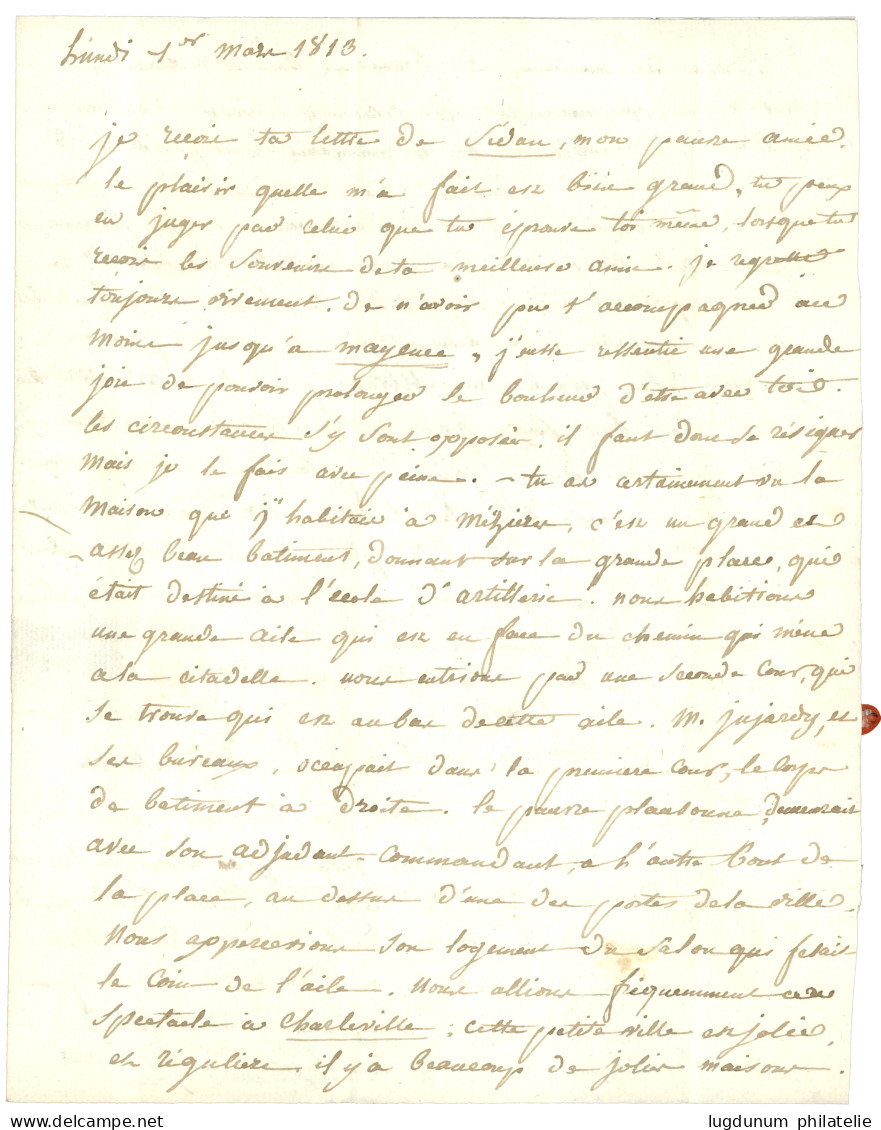 Lundi 1er mars 1813.
je reçois ta lettre de Sedan, mon pauvre amie.
le plaisir quelle m'a fait est bien grand, tu peux
en juger par celui que tu éprouve toi même, lorsque tu
reçois les souvenirs de ta meilleure amie. je regrette
toujours vivement de n'avoir pue t'accompagner au
moins jusqu'a mayence, j'eusse ressentie une grande
joie de pouvoir prolonger le bonheur d'être avec toi.
les circonstances s'y sont opposés, il faut donc se résigner
mais je le fais avec peine. - tu as certainement vu la
maison que j'habitais à Mézieres, c'est un grand et
assez beau batiment, donnant sur la grande place, qui
était destiné à l'école d'artillerie. nous habitions
une grande aile qui est en face du chemin qui mène
a la citadelle. nous entrions par une seconde cour, qui
se trouve qui est au bas de cette aile. M. jujardy, et
ses bureaux, occupait dans la premiere cour, le corps
de batiment à droite. le pauvre plausonne demeurait
avec son adjudant-commandant, a l'autre bout de
la place, au dessus d'une des portes de la ville.
Nous appercevions son logement du salon qui fesait
le coin de l'aile. Nous allions fréquemment au
spectacle à Charleville; cette petite ville est jolie,
et réguliere, il y a beaucoup de jolies maisons.
lugdunum philatelie